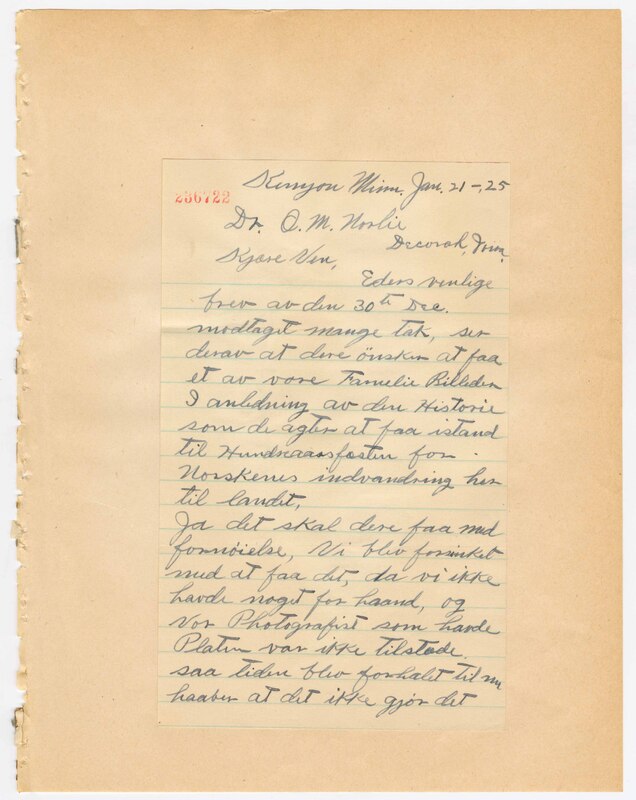 Kenyon Minn. Jan. 21-, 25
236722
Dr. O. M. Norlie
Decorah, Iowa.
Kjære Ven,
Eders venlige
brev av den 30th Dec.
modtaget mange tak, ser
derav at dere önsker at faa
et av vore Famelie Billeder
I anledning av den Historie
som de agter at faa istand
til Hundraarsfesten for
Norskenes indvandring her
til landet,
Ja det skal dere faa med
fornöielse, Vi blev forsinket
med at faa det, da vi ikke
havde noget for haand, og
Vor Photografist som havde
Platen var ikke tilstede.
saa tiden blev forhalet til nu
haaber at det ikke gjör det